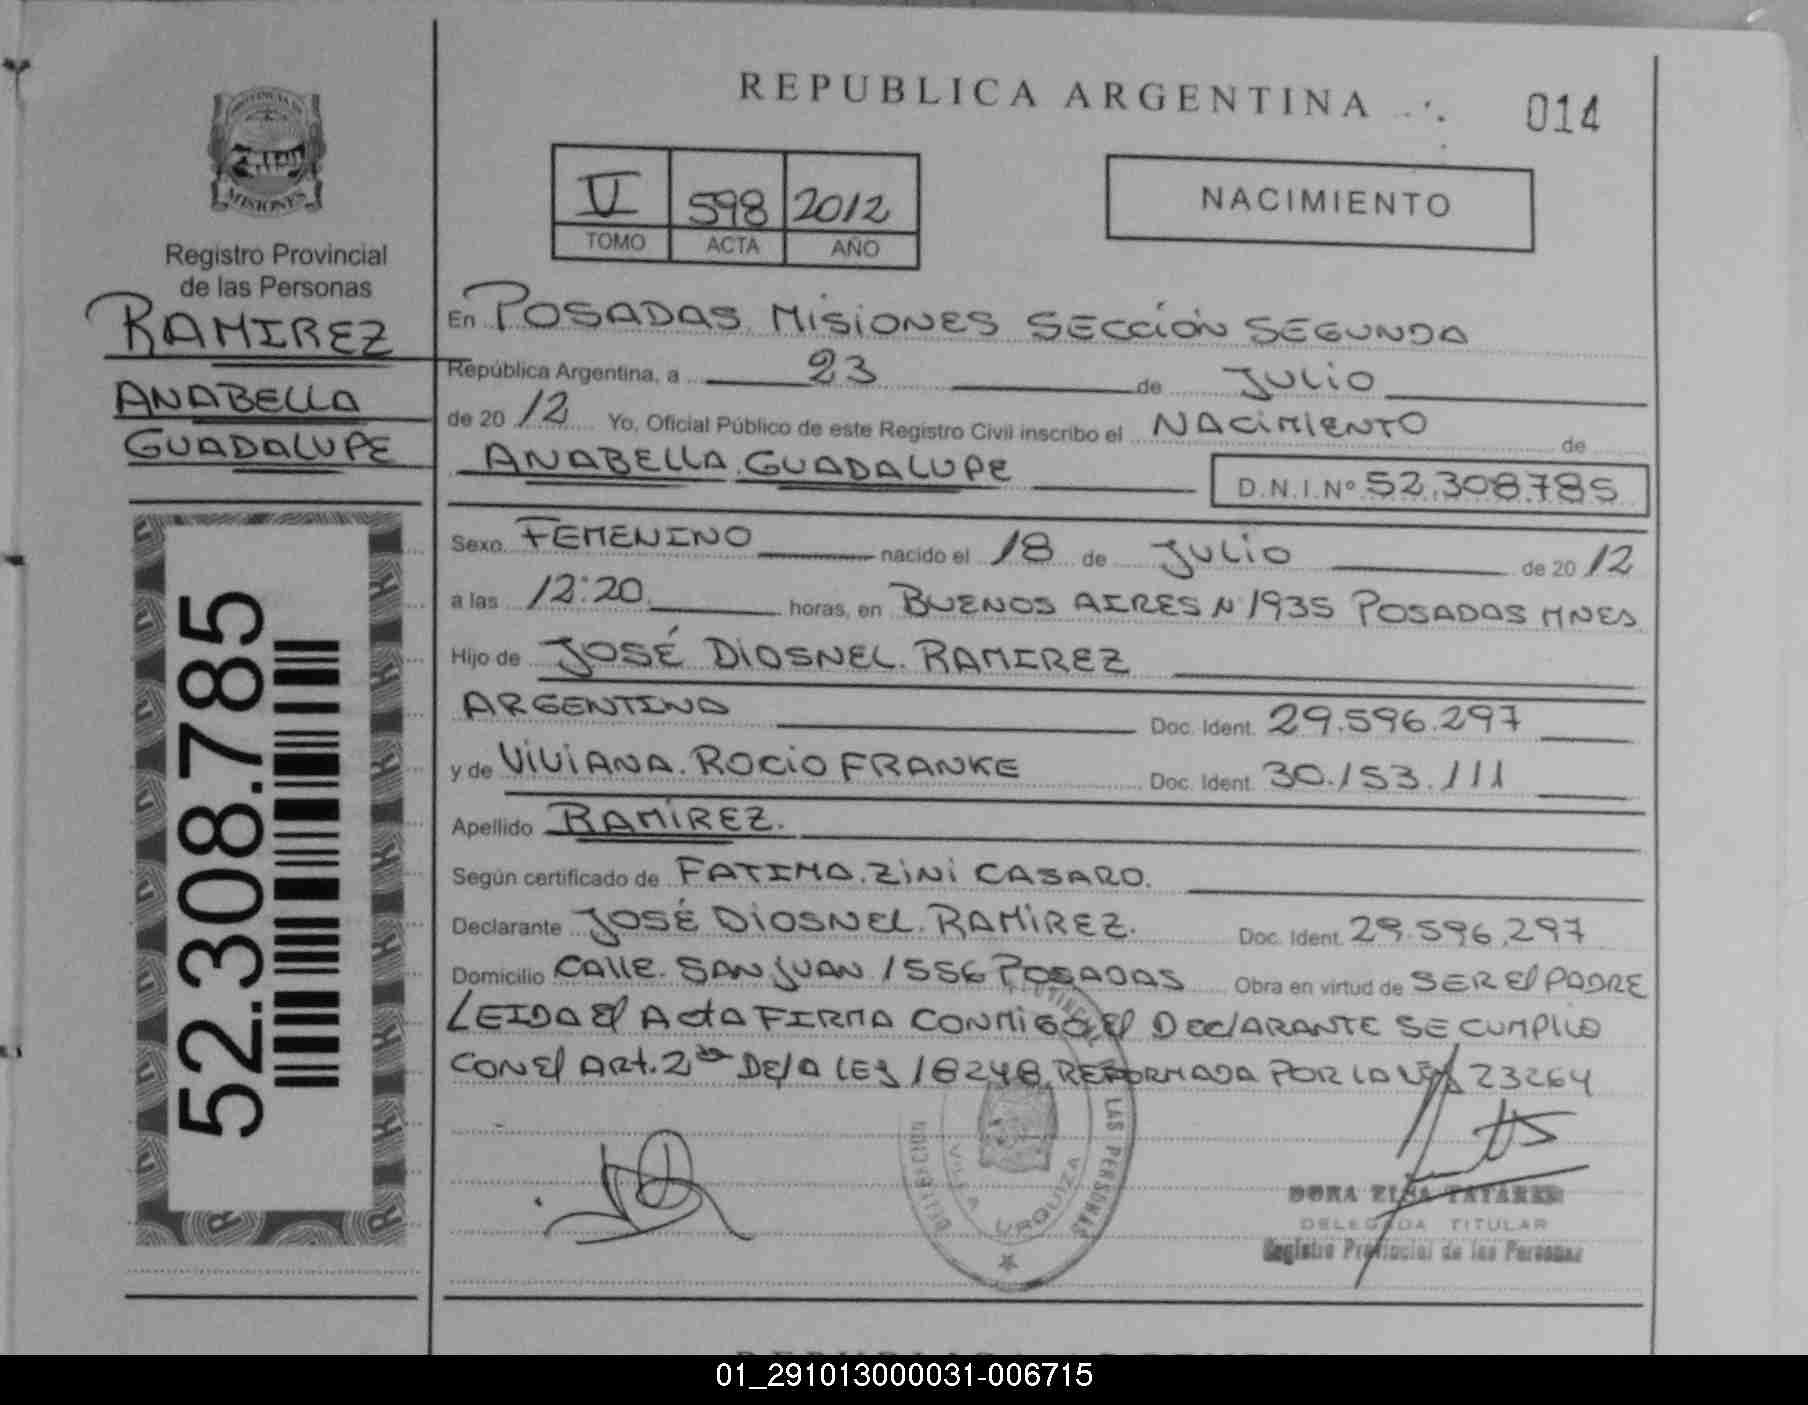 PROVINCIA DE
MISIONES
Registro Provincial
de las Personas
RAMIREZ
ANABELLA
GUADALUPE
52.308.785
REPUBLICA ARGENTINA
014
V 598 2012
TOMO ACTA AÑO
NACIMIENTO
En POSADAS MISIONES SECCIÓN SEGUNDA
República Argentina, a 23 de JULIO
de 2012 Yo, Oficial Público de este Registro Civil inscribo el NACIMIENTO de
ANABELLA GUADALUPE D.N.I.Nº 52.308.785
Sexo FEMENINO nacido el 18 de JULIO de 2012
a las 12:20 horas, en BUENOS AIRES N 1935 POSADAS MNES
Hijo de JOSÉ DIOSNEL RAMIREZ
ARGENTINO Doc. Ident. 29.596.297
y de VIVIANA ROCIO FRANKE Doc. Ident. 30.153.111
Apellido RAMÍREZ.
Según certificado de FATIMA ZINI CASARO.
Declarante JOSÉ DIOSNEL RAMÍREZ. Doc. Ident. 29.596.297
Domicilio CALLE SAN JUAN 1556 POSADAS Obra en virtud de SER El PADRE
LEIDA El ActA FIRMA CONMIGO El DEClARANTE SE CUMPLIO
CON El ARt. 2 DE lA LEY 18248 REFORMADA POR LA LEY 23264
DELEGACION LAS PERSONAS
VILLA URQUIZA
DORA ELSA
DELEGADA TITULAR
Registro Provincial de las Personas
01_291013000031-006715